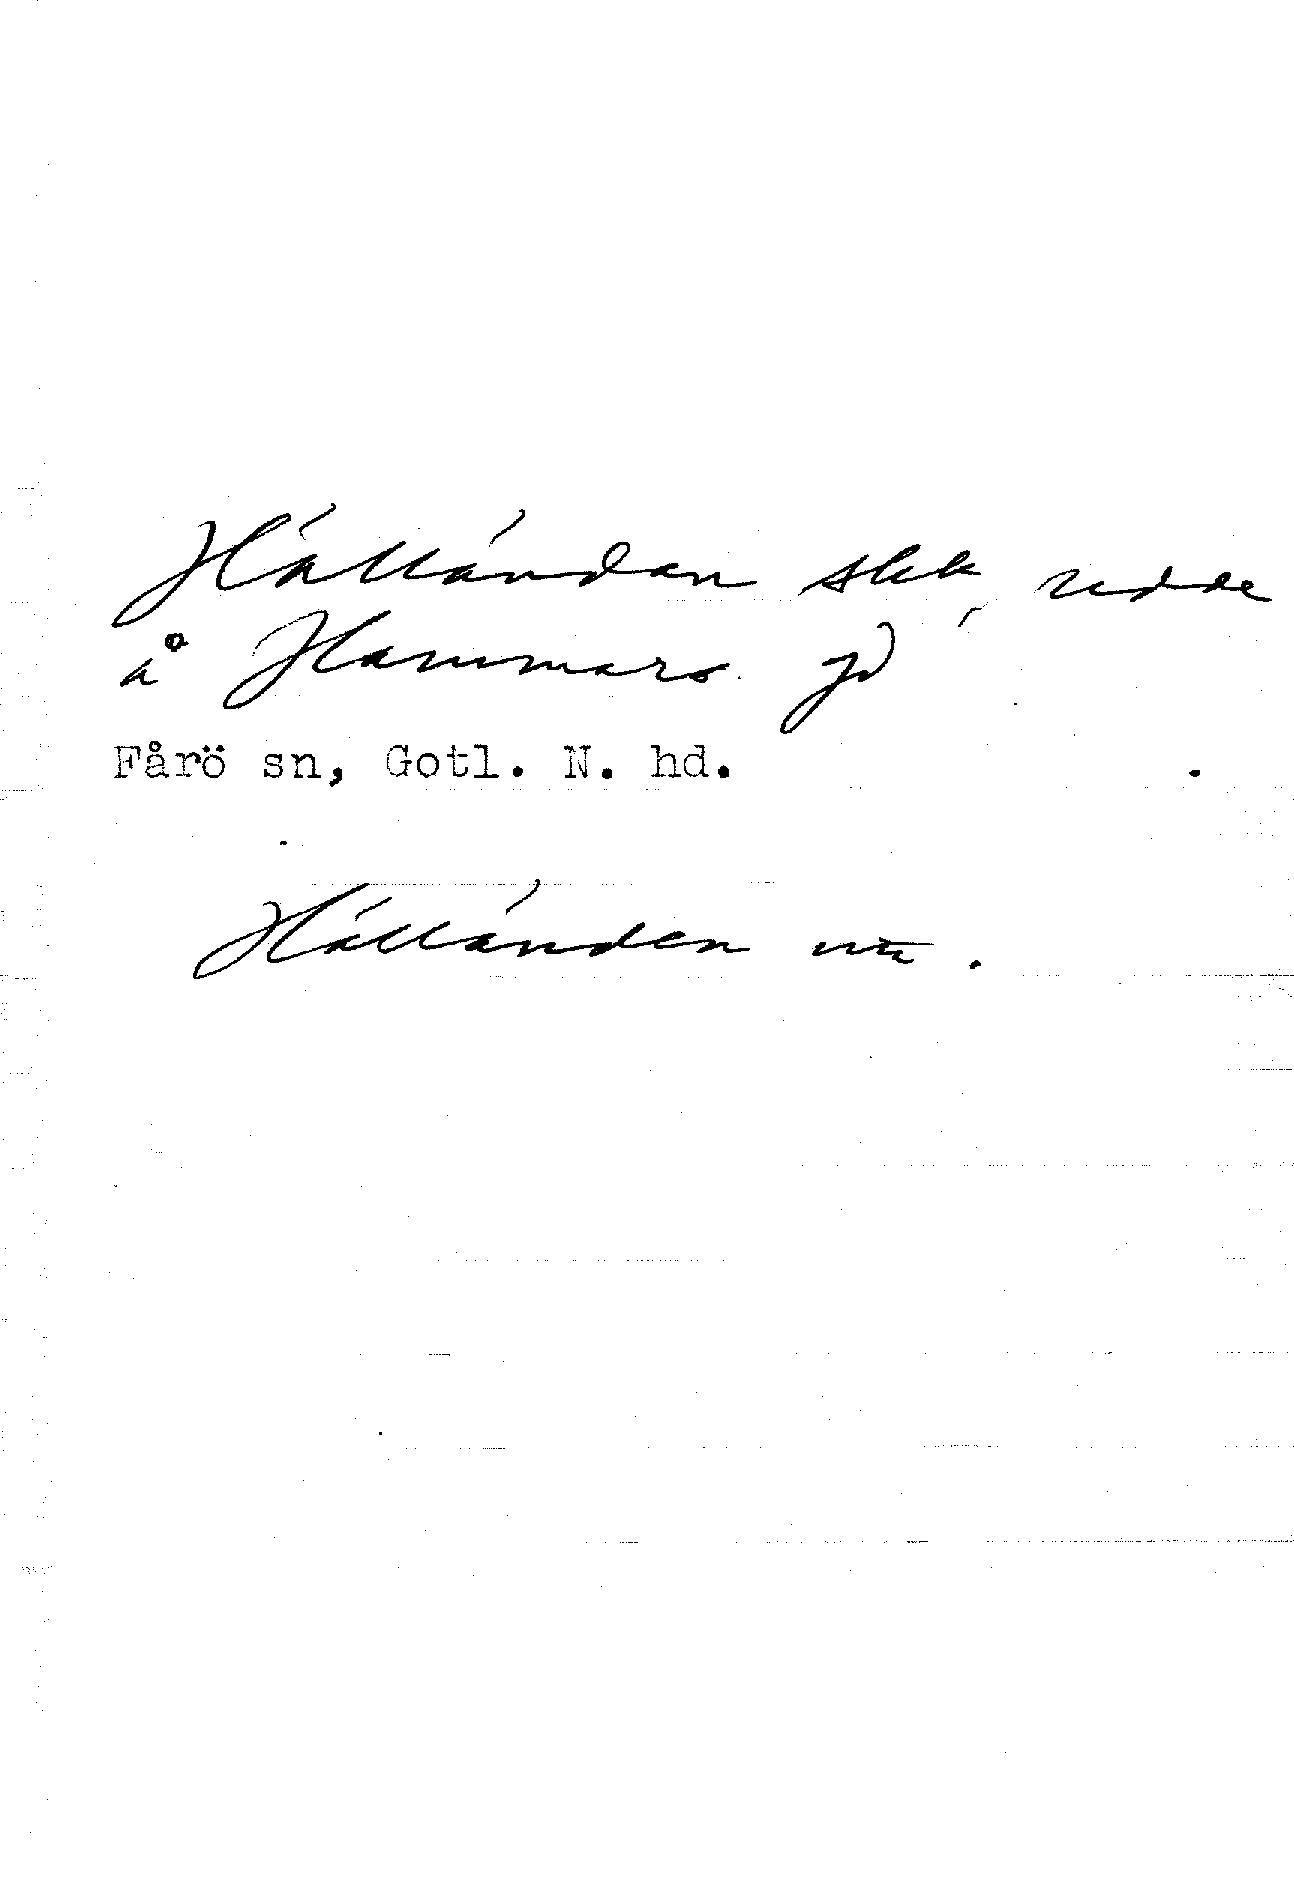 Hállándan skk, udde
å Hammars jd
Fårö sn, Gotl. N. hd.
Hállánden